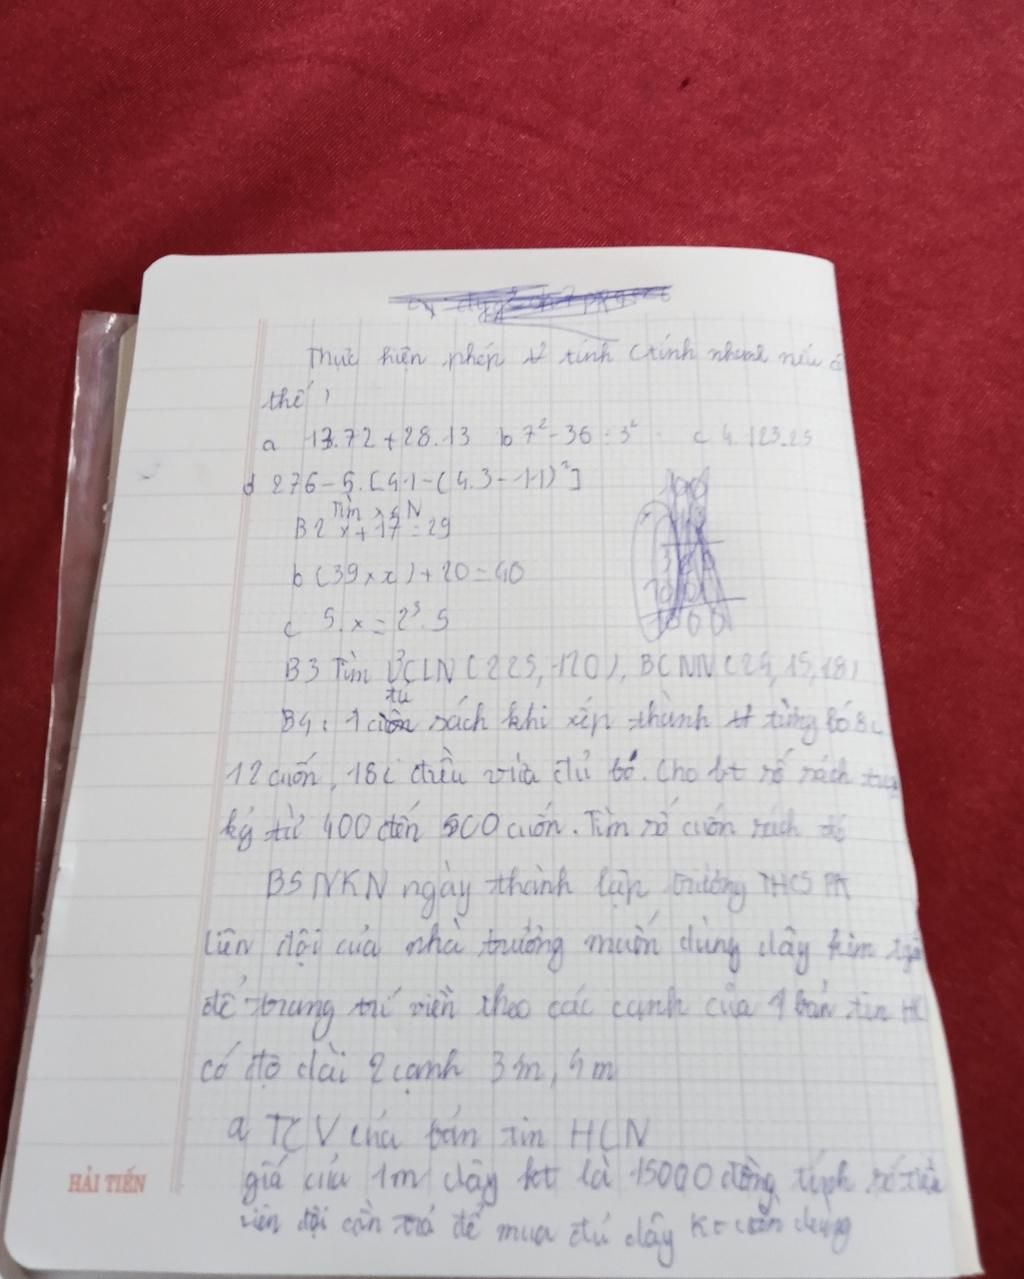 Thực hiện phép tính (tính nhanh nếu có
thế)
a 13.72+28.13 b 7²-36:3² c 4.123.25
d 276-5.[41-(4.3-11)²]
Tìm x ∈ N
B2 x+17=29
b (39xx)+20=40
c 5.x=2³.5
B3 Tìm ƯCLN(225,120), BCNN(24,15,18)
tủ
B4: 1 sách khi xếp thành từng bó 8c
12 cuốn, 18c đều vừa đủ bó. Cho bt số sách
từ 400 đến 500 cuốn. Tìm số cuốn sách đó
B5 NKN ngày thành lập trường THCS
liên đội của nhà trường muốn dùng dây kim
để trang trí viền theo các cạnh của 1 bản tin HC
có độ dài 2 cạnh 3m, 4m
a TCV của bản tin HCN
giá của 1m dây kt là 15000 đồng tính số tiền
liên đội cần trả để mua đủ dây kt cần dùng
HẢI TIẾN